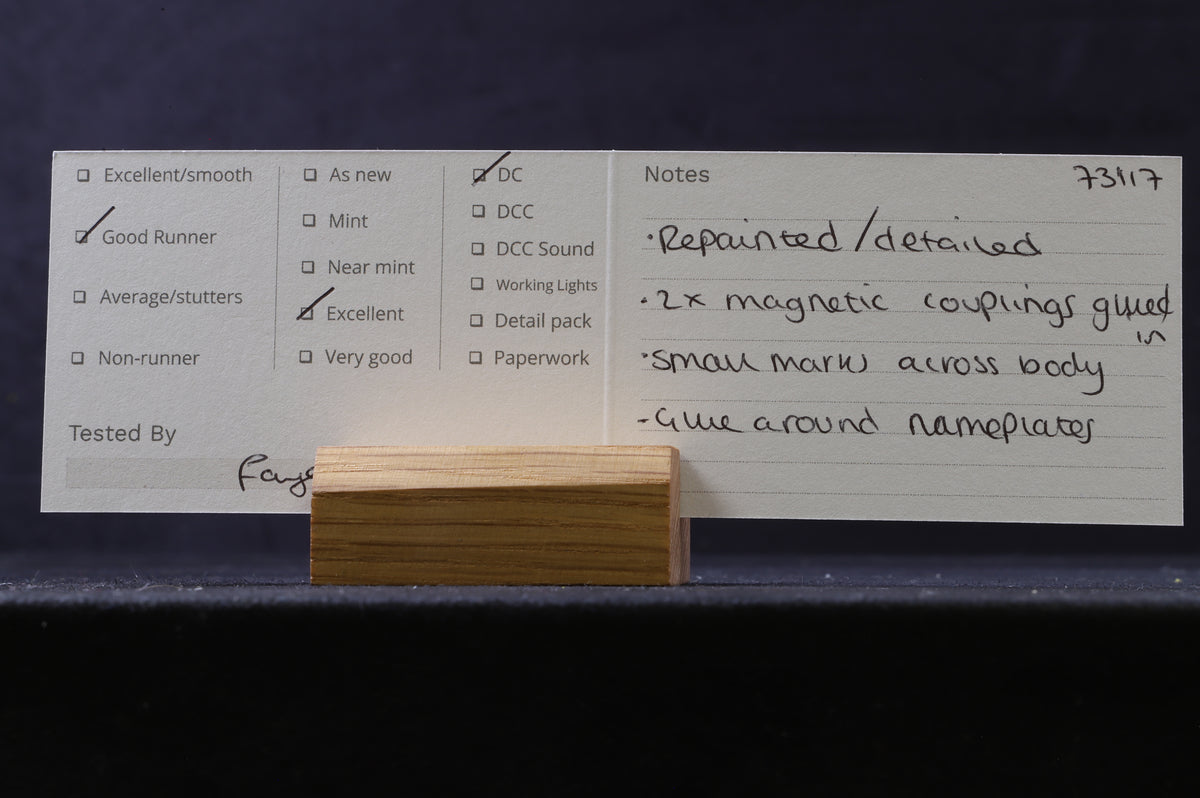 Excellent/smooth
Good Runner
Average/stutters
Non-runner
As new
Mint
Near mint
Excellent
Very good
DC
DCC
DCC Sound
Working Lights
Detail pack
Paperwork
Tested By
Notes
73117
·Repainted/detailed
·2x magnetic couplings glued
in
·Small marks across body
-Glue around nameplates